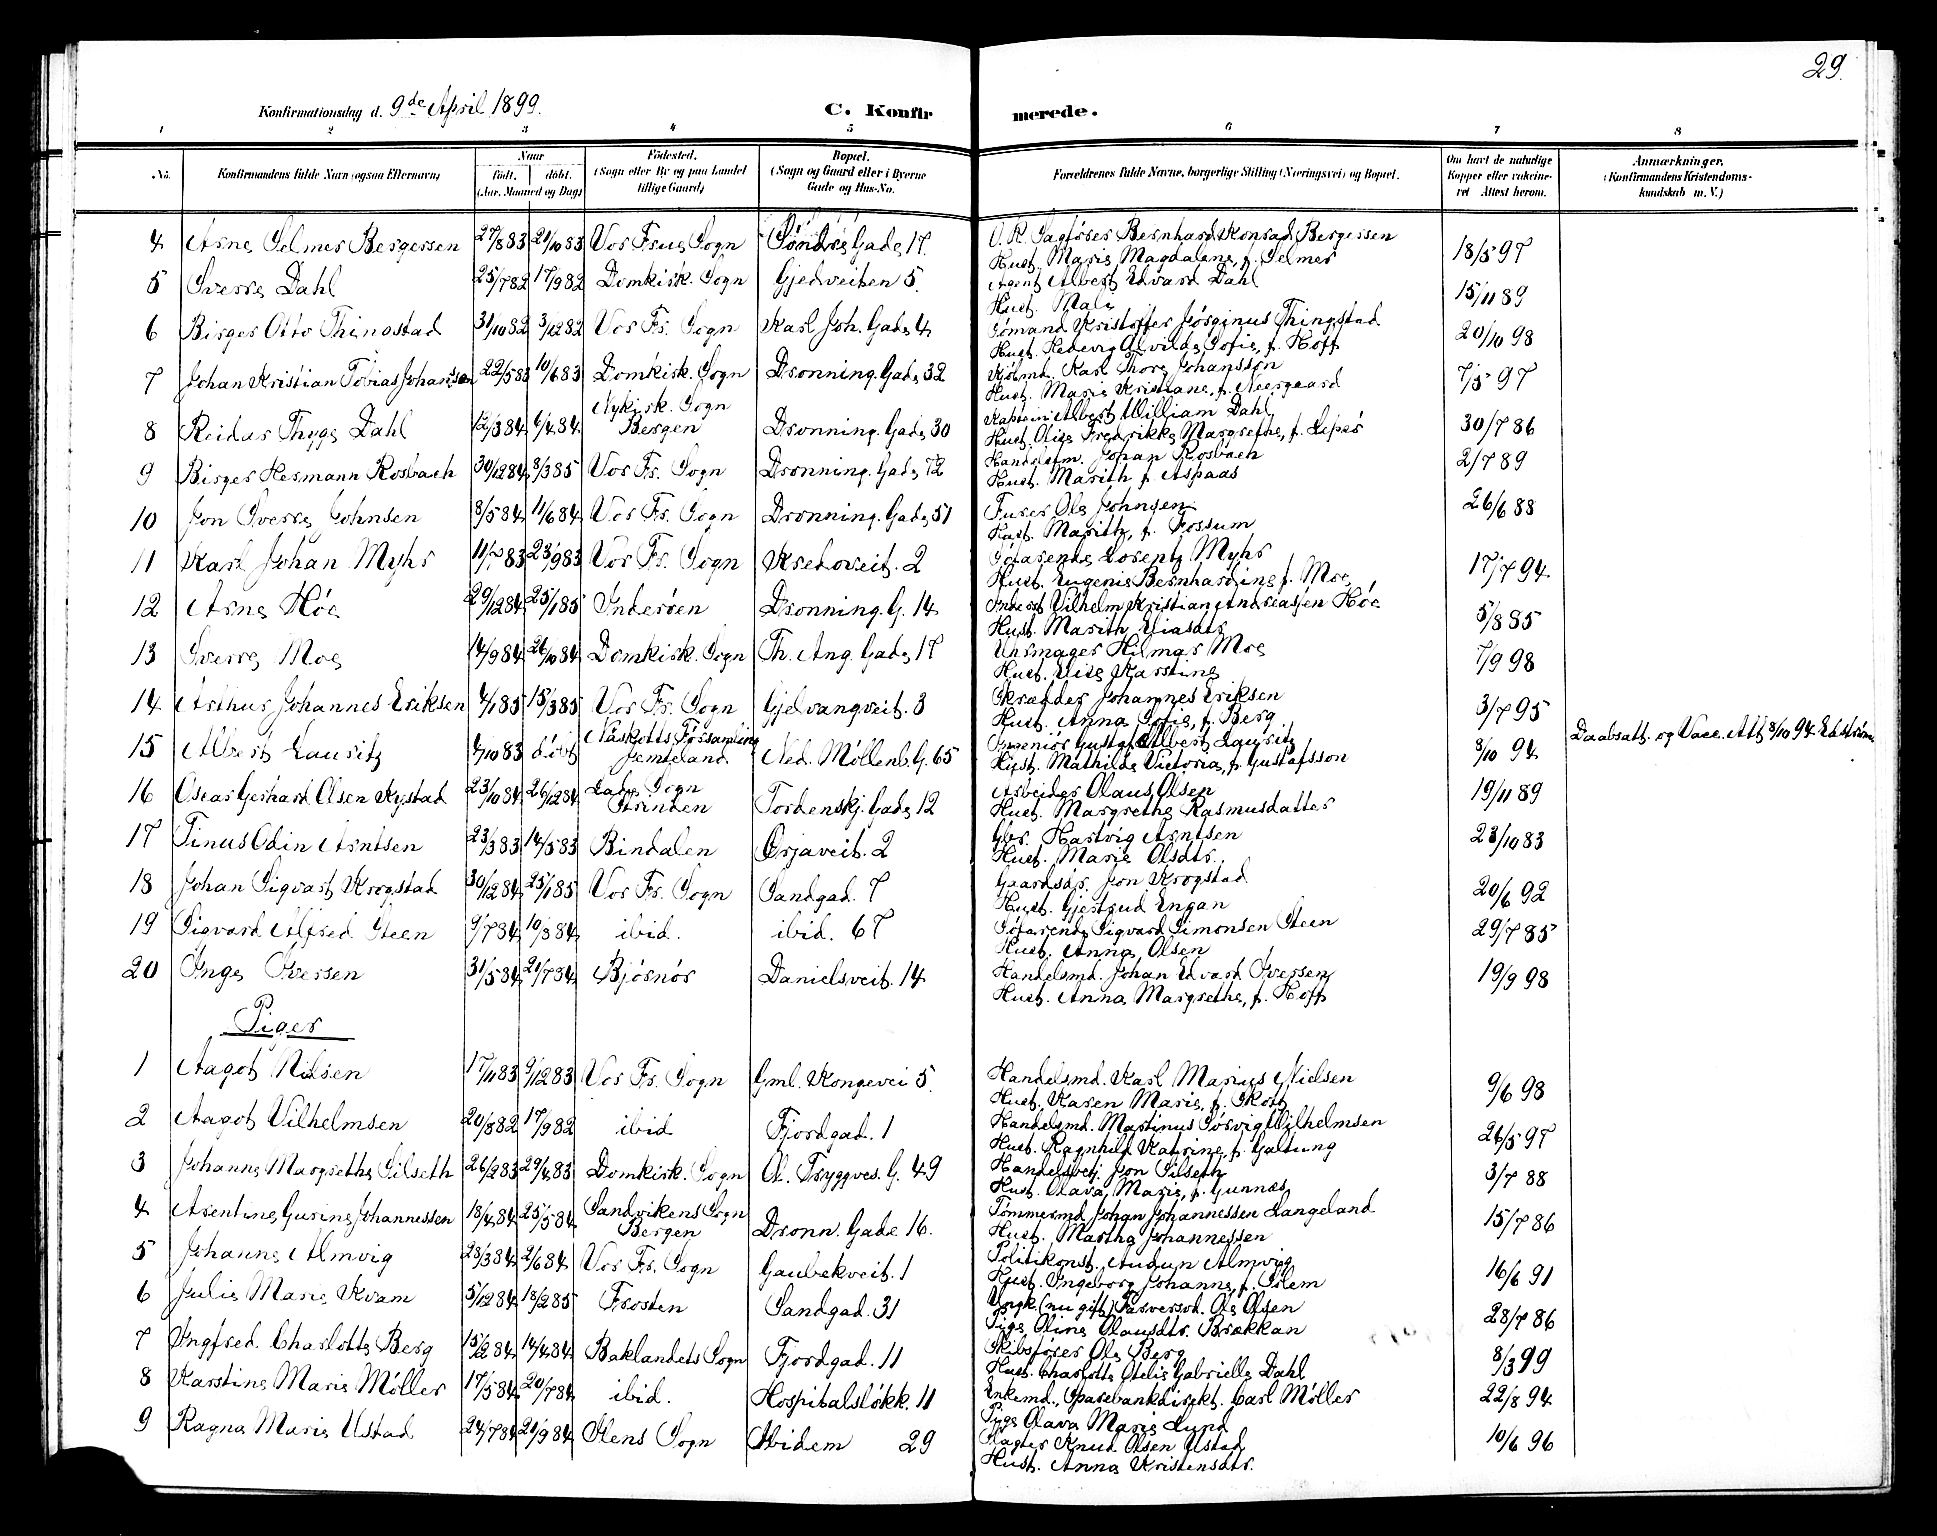 29.
Konfirmationsdag d. 9de April 1899. C. Konfirmerede.
1 2 3 4 5 6 7 8
No. Konfirmandens fulde Navn (ogsaa Efternavn) Naar født. døbt. (Aar, Maaned og Dag) Fødested. (Sogn eller By og paa Landet tillige Gaard) Bopæl. (Sogn og Gaard eller i Byerne Gade og Hus-No. Forældrenes fulde Navne, borgerlige Stilling (Næringsvei) og Bopæl. Om havt de naturlige Kopper eller vaccineret Attest herom. Anmærkninger. (Konfirmandens Kristendomskundskab m. V.)
4 Arne Selmer Bergersen 27/8 83 21/10 83 Vor Frue Sogn Søndre Gade 17. O.R. Sagfører Bernhard Konrad Bergersen 18/5 97
Hust. Marie Magdalene, f. Selmer
5 Sverre Dahl 25/7 82 17/9 82 Domkirk. Sogn Gjedveiten 5. Agent Albert Edvard Dahl 15/11 89
Hust. Mali
6 Birger Otto Thingstad 31/10 82 3/12 82 Vor Fr. Sogn Karl Joh. Gade 4 Sømand Kristoffer Jørginus Thingstad 20/10 98
Hust. Hedevig Alvilde Sofie, f. Hoff
7 Johan Kristian Tobias Johansen 22/5 83 10/6 83 Domkirk. Sogn Dronning. Gade 32 Kjøbmd. Karl Thore Johanssen 7/5 97
Hust. Marie Kristiane, f. Neergaard
8 Reidar Thyge Dahl 12/3 84 6/4 84 Nykirk. Sogn Bergen Dronning. Gade 30 Kaptein Albert William Dahl 30/7 86
Hust. Olise Fredrikke Margrethe, f. Lepsø
9 Birger Hermann Rosbach 30/12 84 8/3 85 Vor Fr. Sogn Dronning. Gade 72 Handelsm. Johan Rosbach 2/7 89
Hust. Marith f. Aspaas
10 Jon Sverre Johnsen 8/5 84 11/6 84 Vor Fr. Sogn Dronning. Gade 51 Furer Ole Johnsen 26/6 88
Hust. Marith, f. Fossum
11 Karl Johan Myhr 11/7 83 23/9 83 Vor Fr. Sogn Vredoveit. 2 Søfarende Lorentz Myhr 17/7 94
Hust. Eugenie Bernhardine f. Moe
12 Arne Høe 29/12 84 25/1 85 Inderøen Dronning. G. 14 Vilhelm Kristian Andreassen Høe 5/8 85
Hust. Marith
13 Sverre Moe 14/9 84 26/10 84 Domkirk. Sogn Th. Ang. Gade 17 Urmager Hilmar Moe 7/9 98
Hust. Elise Karstine
14 Arthur Johannes Eriksen 4/1 85 15/3 85 Vor Fr. Sogn Gjelvangveit. 3 Skrædder Johannes Eriksen 3/7 95
Hust. Anna Sofie, f. Berg.
15 Albert Lauritz 4/10 83 døbt Näskotts Församling Jemteland Ned. Møllenb. G. 65 Ingeniør Gustaf Albert Lauritz 8/10 94 Daabsatt. og Vacc. Att 8/10 94
Hust. Mathilde Victoria, f. Gustafsson
16 Oscar Gerhard Olsen Rystad 23/10 84 26/12 84 Lade Sogn Strinden Tordenskj. Gade 12 Arbeider Olaus Olsen 19/11 89
Hust. Margrethe Rasmusdatter
17 Tinus Odin Arntsen 23/3 83 14/5 83 Bindalen Ørjaveit. 2 Gbr. Hartvig Arntsen 23/10 83
Hust. Marie Olsdtr.
18 Johan Sigvart Krogstad 30/12 84 25/1 85 Vor Fr. Sogn Sandgad. 7 Gaardsar. Jon Krogstad 20/6 92
Hust. Gjertrud Engan
19 Sigvard Alfred Steen 9/7 84 10/8 84 ibid. ibid. 67 Søfarende Sigvard Simonsen Steen 29/7 85
Hust. Anna Olsen
20 Inge Iversen 31/5 84 21/7 84 Bjørnør Danielsveit. 14 Handelsmd. Johan Edvard Iversen 19/9 98
Hust. Anna Margrethe, f. Hoff
Piger
1 Aagot Nilsen 17/11 83 9/12 83 Vor Fr. Sogn Gml. Kongevei 5. Handelsmd. Karl Marius Nielsen 9/6 98
Hust. Karen Marie, f. Skott
2 Aagot Vilhelmsen 20/8 82 17/9 82 ibid Fjordgad. 1 Handelsmd. Martinus Sørvig Vilhelmsen 26/5 97
Hust. Ragnhild Katrine, f. Galtung
3 Johanne Margrethe Silseth 26/2 83 29/4 83 Domkirk. Sogn Ol. Tryggves. G. 49 Handelsbetj. Jon Silseth 3/7 88
Hust. Olava Marie, f. Gunnes
4 Arentine Gurine Johannessen 18/4 84 25/5 84 Sandvikens Sogn Bergen Dronn. Gade 16. Tømmermd Johan Johannessen Langeland 15/7 86
Hust. Martha Johannessen
5 Johanne Almvig 23/3 84 2/6 84 Vor Fr. Sogn Gaubekveit. 1 Politikonst. Audun Almvig 16/6 91
Hust. Ingeborg Johanne, f. Solem
6 Julie Marie Kvam 5/12 84 18/2 85 Frosten Sandgad. 31 Ungk. (nu gift) Farversvd. Ole Olsen 28/7 86
Pige Oline Olausdtr. Brækkan
7 Ingfred. Charlotte Berg 15/2 84 14/4 84 Baklandets Sogn Fjordgad. 11 Skibsfører Ole Berg 8/3 99
Hust. Charlotte Otelie Gabrielle Dahl
8 Karstine Marie Møller 17/5 84 20/7 84 ibid. Hospitalsløkk. 11 Enkemd., Sparebankdirekt. Carl Møller 22/8 94
Pige Olava Marie Lund
9 Ragna Marie Ustad 24/7 84 21/9 84 Ilens Sogn Ibidem 29 Slagter Knud Olsen Ustad 10/6 96
Hust. Anna Kristensdtr.